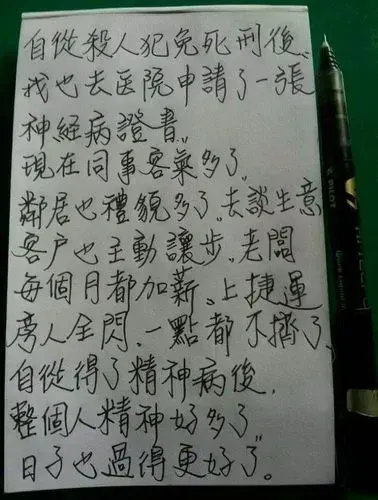 自從殺人犯免死刑後〟
我也去医院申請了一張
神经病證書〟
現在同事客氣多了〟
鄰居也禮貌多了〟去談生意
客户也主動讓步〟老闆
每個月都加薪〟上捷運
旁人全閃〟一點都不擠了〟
自從得了精神病後,
整個人精神好多了〟
日子也過得更好了〟。
PILOT